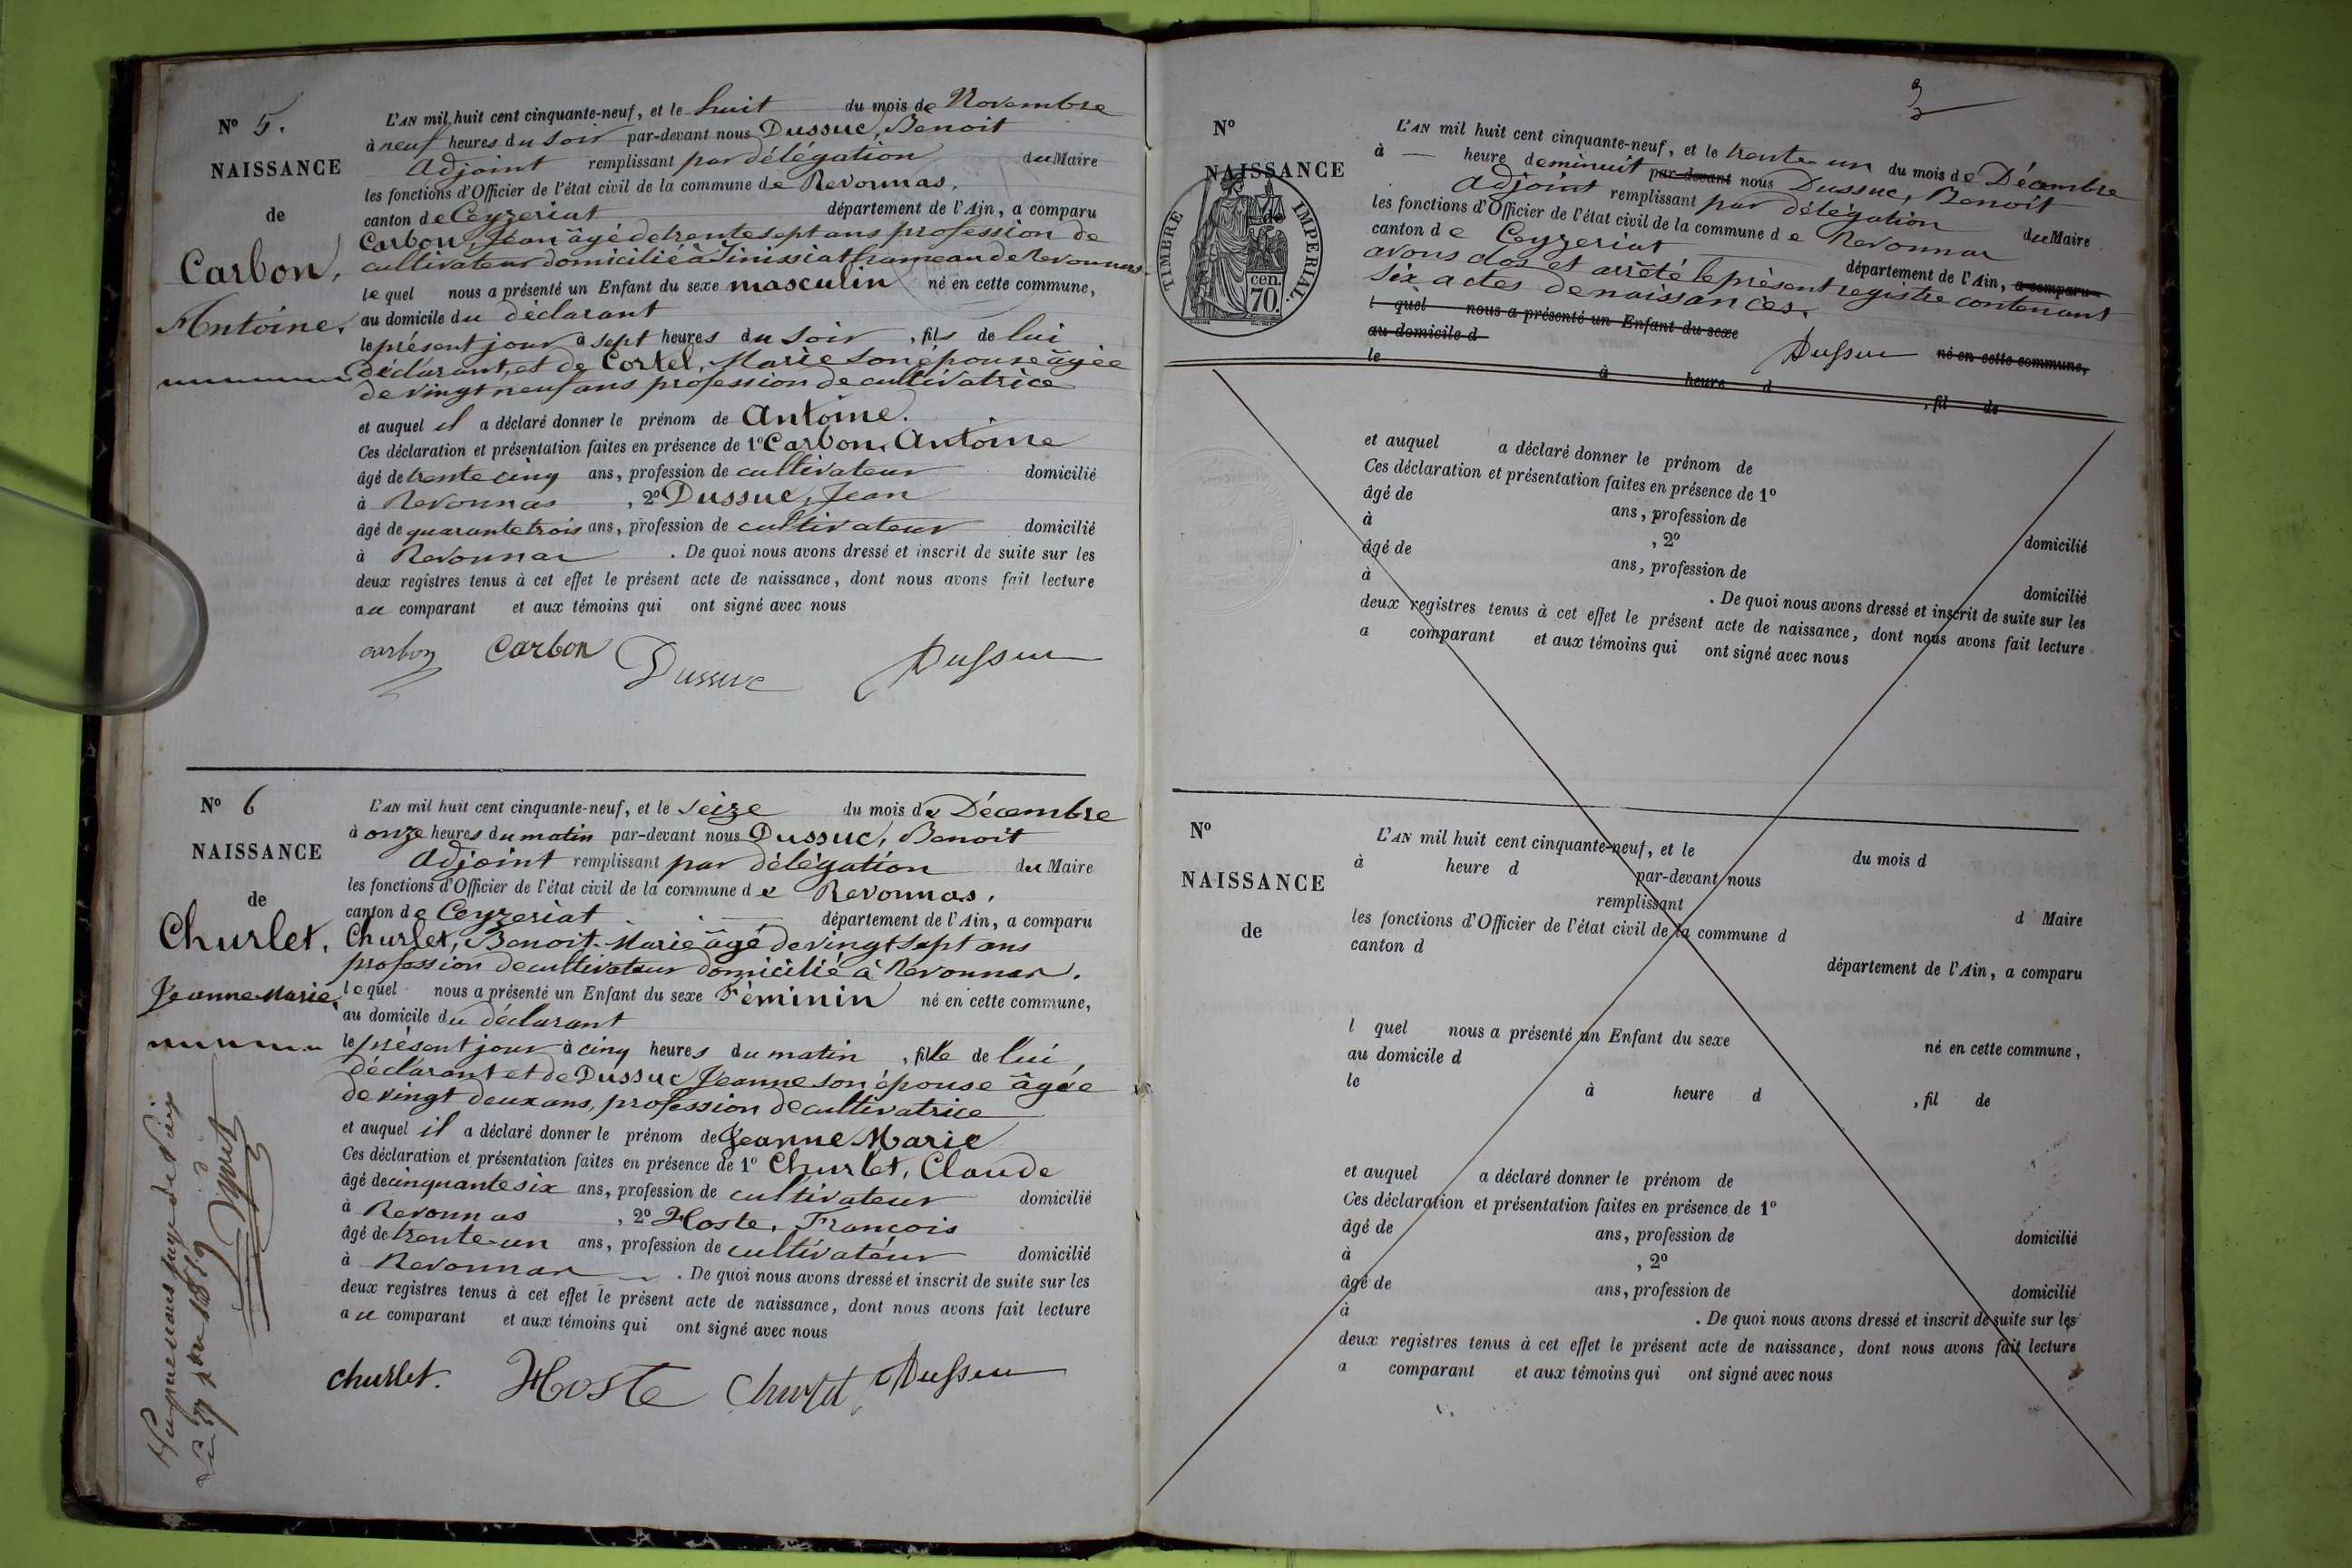 N° 5.
NAISSANCE
de
Carbon,
Antoine.
L'AN mil huit cent cinquante-neuf, et le huit du mois de Novembre
à neuf heures du soir par-devant nous Dussuc, Benoit
Adjoint remplissant par délégation du Maire
les fonctions d'Officier de l'état civil de la commune de Revonnas.
canton de Ceyzeriat département de l'Ain, a comparu
Carbon, Jean âgé de trente sept ans profession de
cultivateur domicilié à Sinissiat hameau de Revonnas.
lequel nous a présenté un Enfant du sexe masculin né en cette commune,
au domicile du déclarant
le présent jour à sept heures du soir, fils de lui
déclarant, et de Cortel, Marie son épouse âgée
de vingt neuf ans profession de cultivatrice
et auquel il a déclaré donner le prénom de Antoine.
Ces déclaration et présentation faites en présence de 1° Carbon, Antoine
âgé de trente cinq ans, profession de cultivateur domicilié
à Revonnas, 2° Dussuc, Jean
âgé de quarante trois ans, profession de cultivateur domicilié
à Revonnas. De quoi nous avons dressé et inscrit de suite sur les
deux registres tenus à cet effet le présent acte de naissance, dont nous avons fait lecture
au comparant et aux témoins qui ont signé avec nous
carbon Carbon Dussuc Dussuc
N° 6
NAISSANCE
de
Churlet,
Jeanne Marie
L'AN mil huit cent cinquante-neuf, et le seize du mois de Décembre
à onze heures du matin par-devant nous Dussuc, Benoit
Adjoint remplissant par délégation du Maire
les fonctions d'Officier de l'état civil de la commune de Revonnas.
canton de Ceyzeriat département de l'Ain, a comparu
Churlet, Benoit-Marie âgé de vingt sept ans
profession de cultivateur domicilié à Revonnas.
lequel nous a présenté un Enfant du sexe Féminin né en cette commune,
au domicile du déclarant
le présent jour à cinq heures du matin, fille de lui,
déclarant et de Dussuc Jeanne son épouse âgée
de vingt deux ans, profession de cultivatrice
et auquel il a déclaré donner le prénom de Jeanne Marie
Ces déclaration et présentation faites en présence de 1° Churlet, Claude
âgé de cinquante six ans, profession de cultivateur domicilié
à Revonnas, 2° Hoste, François
âgé de trente-un ans, profession de cultivateur domicilié
à Revonnas. De quoi nous avons dressé et inscrit de suite sur les
deux registres tenus à cet effet le présent acte de naissance, dont nous avons fait lecture
au comparant et aux témoins qui ont signé avec nous
churlet. Hoste Churlet Dussuc
3
N°
NAISSANCE
de
TIMBRE IMPERIAL.
cen.
70.
L'AN mil huit cent cinquante-neuf, et le trente un du mois de Décembre
à — heure de minuit par-devant nous Dussuc, Benoit
Adjoint remplissant par délégation du Maire
les fonctions d'Officier de l'état civil de la commune de Revonnas
canton de Ceyzeriat département de l'Ain, a comparu
avons clos et arrêté le présent registre contenant
six actes de naissances.
l quel nous a présenté un Enfant du sexe né en cette commune,
au domicile d
Dussuc
le à heure d, fil de
et auquel a déclaré donner le prénom de
Ces déclaration et présentation faites en présence de 1°
âgé de ans, profession de domicilié
à , 2°
âgé de ans, profession de domicilié
à . De quoi nous avons dressé et inscrit de suite sur les
deux registres tenus à cet effet le présent acte de naissance, dont nous avons fait lecture
a comparant et aux témoins qui ont signé avec nous
N°
NAISSANCE
de
L'AN mil huit cent cinquante-neuf, et le du mois d
à heure d par-devant nous
remplissant d Maire
les fonctions d'Officier de l'état civil de la commune d
canton d département de l'Ain, a comparu
l quel nous a présenté un Enfant du sexe né en cette commune,
au domicile d
le à heure d , fil de
et auquel a déclaré donner le prénom de
Ces déclaration et présentation faites en présence de 1°
âgé de ans, profession de domicilié
à , 2°
âgé de ans, profession de domicilié
à . De quoi nous avons dressé et inscrit de suite sur les
deux registres tenus à cet effet le présent acte de naissance, dont nous avons fait lecture
a comparant et aux témoins qui ont signé avec nous